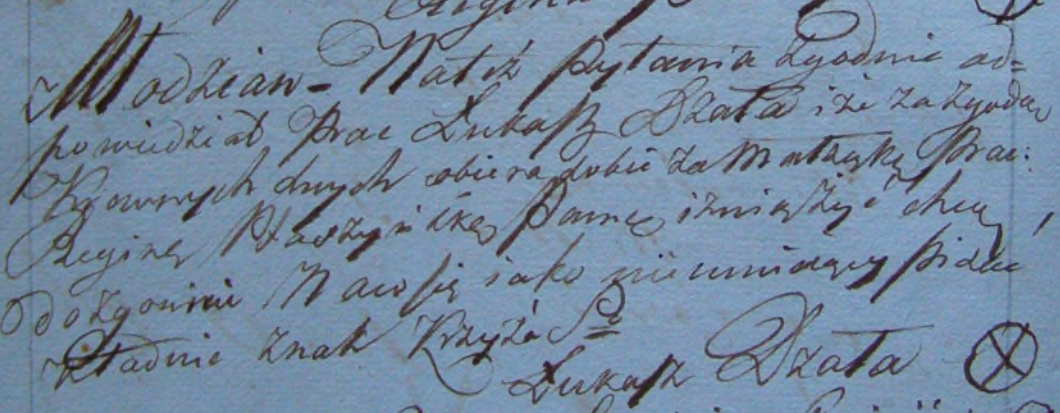 Regina
Młodzian – Na też pytania zgodnie od=
powiedział Prac Łukasz Działa iże za zgodą
Krewnych swych obiera sobie za Małżonkę Prac:
Reginę Pannę iżnią żyć chcę
dozgonnie Na co się iako nieumieiący pisać
kładnie znak Krzyża Sgo
Łukasz Działa